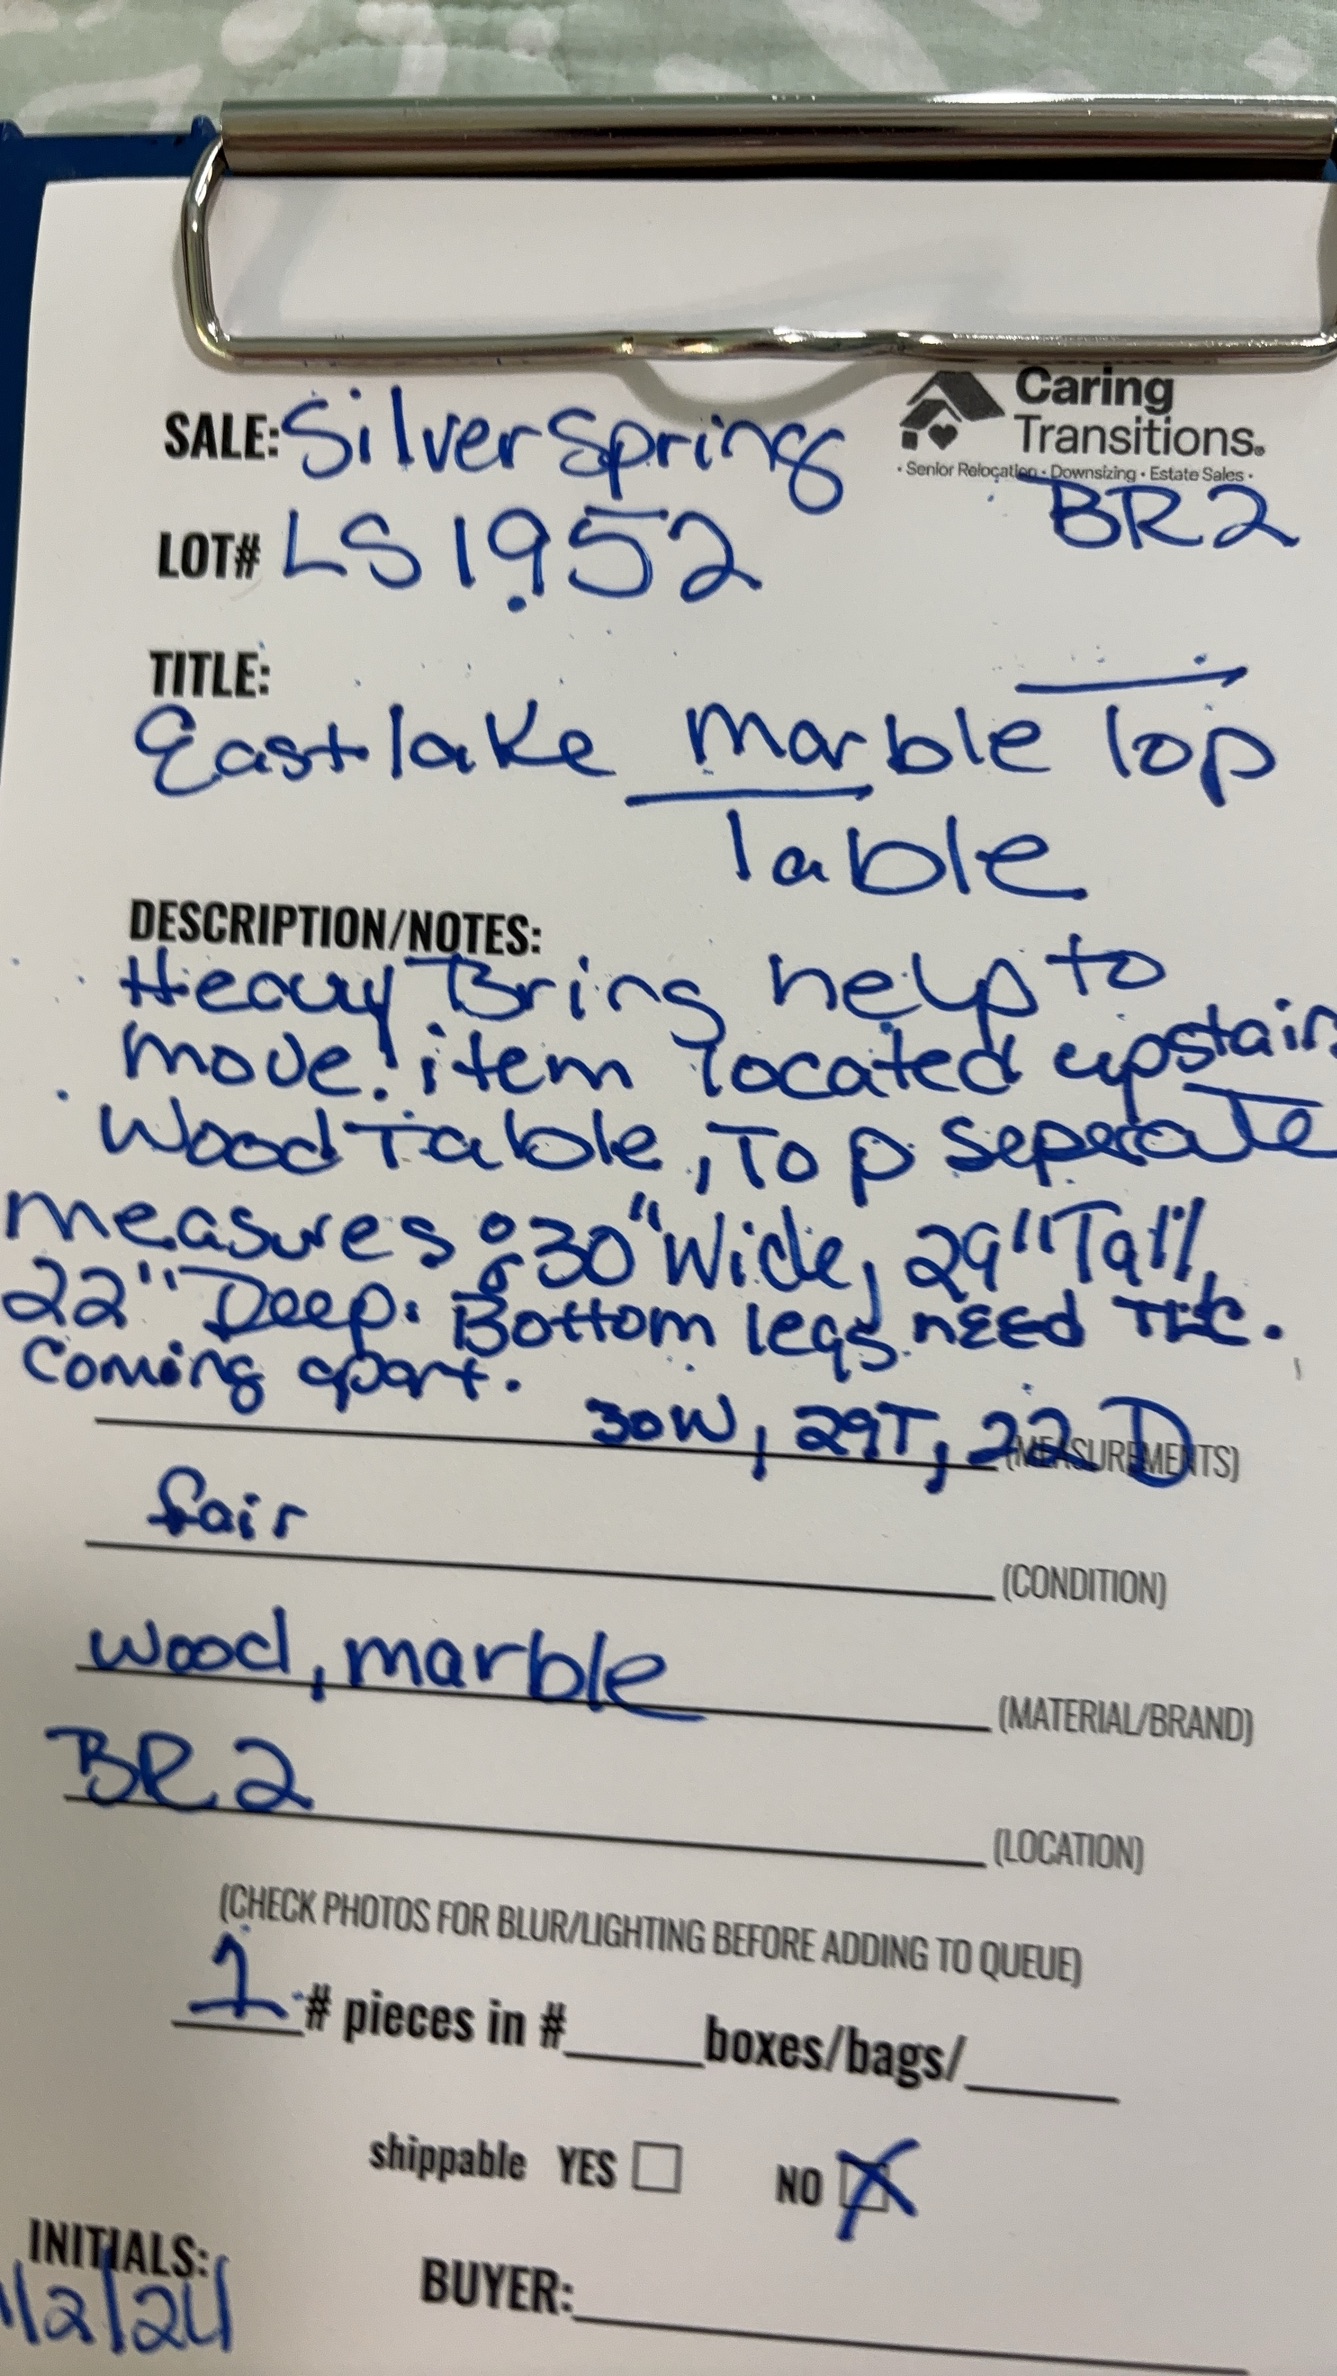 Caring
Transitions®
• Senior Relocation • Downsizing • Estate Sales •
SALE: Silver Springs
BR2
LOT# LS1952
TITLE:
Eastlake marble Top
Table
DESCRIPTION/NOTES:
Heavy Bring help to
move! item located upstairs
Wood Table, Top seperate
measures: 30" Wide, 29" Tall,
22" Deep. Bottom legs need TLC.
Coming apart.
30W, 29T, 22 D (MEASUREMENTS)
fair (CONDITION)
wood, marble (MATERIAL/BRAND)
BR2 (LOCATION)
(CHECK PHOTOS FOR BLUR/LIGHTING BEFORE ADDING TO QUEUE)
1 # pieces in #_____ boxes/bags/_____
shippable YES ☐ NO ☒
INITIALS:
BUYER:
/2/24